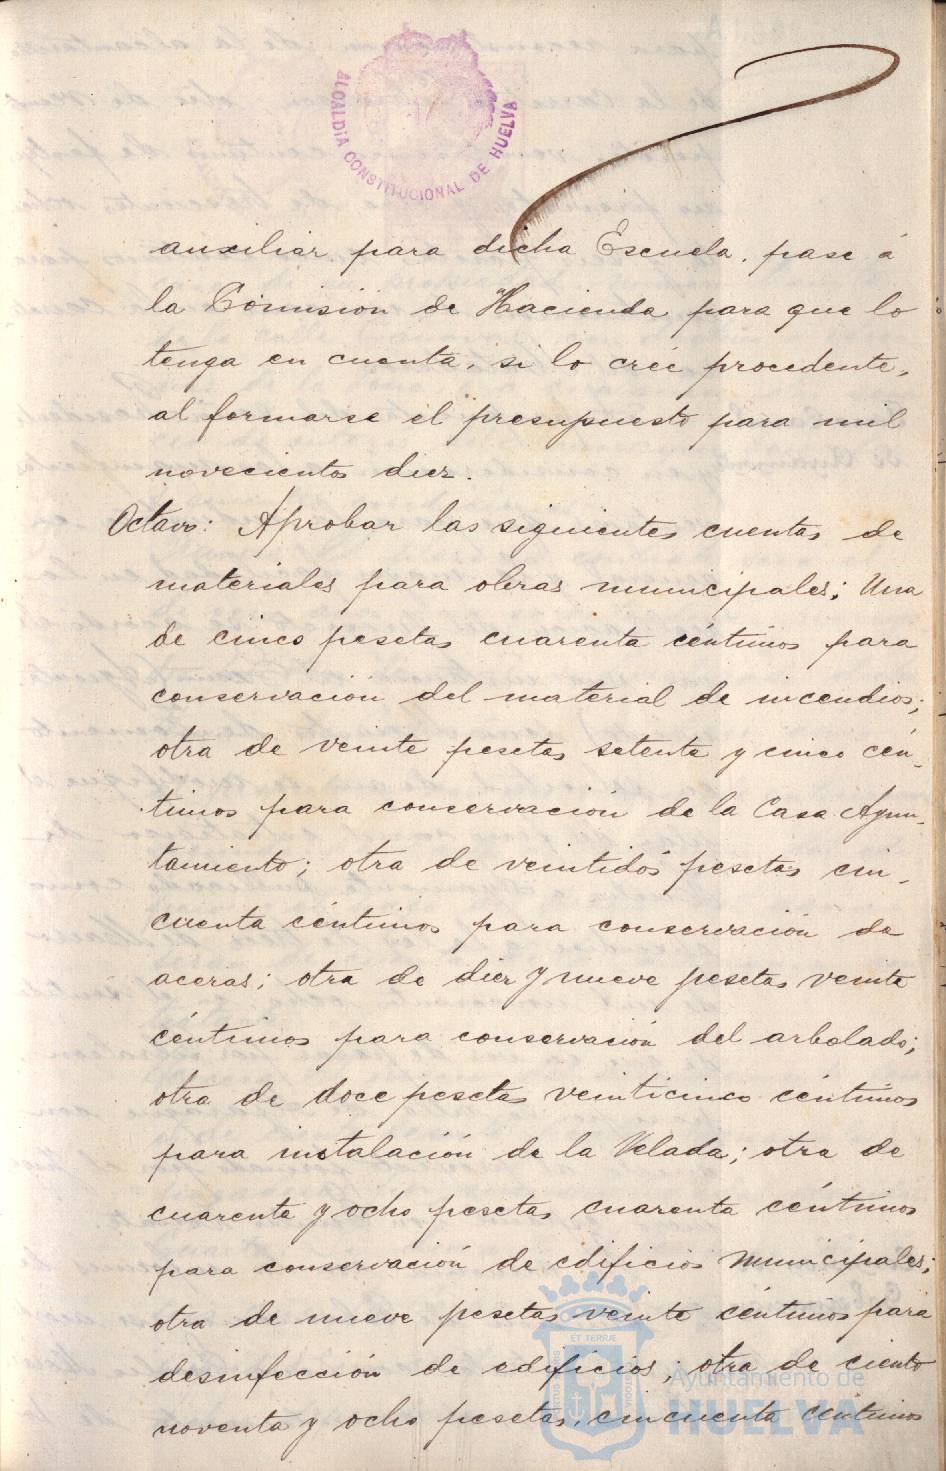 ALCALDÍA CONSTITUCIONAL DE HUELVA
auxiliar para dicha Escuela, pase á
la Comisión de Hacienda para que lo
tenga en cuenta, si lo crée procedente,
al formarse el presupuesto para mil
novecientos diez.
Octavo: Aprobar las siguientes cuentas de
materiales para obras municipales; Una
de cinco pesetas cuarenta céntimos para
conservación del material de incendios;
otra de veinte pesetas setenta y cinco cén-
timos para conservación de la Casa Ayun-
tamiento; otra de veintidos pesetas cin-
cuenta céntimos para conservación de
aceras; otra de diez y nueve pesetas veinte
céntimos para conservación del arbolado;
otra de doce pesetas veinticinco céntimos
para instalación de la Velada; otra de
cuarenta y ocho pesetas cuarenta céntimos
para conservación de edificios municipales;
otra de nueve pesetas veinte céntimos para
desinfección de edificios; otra de ciento
noventa y ocho pesetas, cincuenta céntimos
ET TERRÆ
Ayuntamiento de
HUELVA